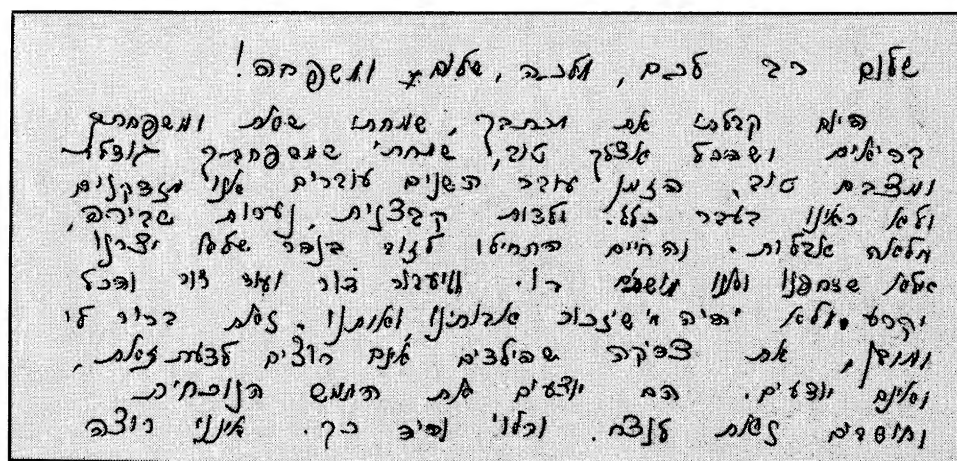 שלום רב לכם, מלכה, שלום ומשפחה!
היום קבלתי את מכתבך, שמחתי שאת ומשפחתך
בריאים ושהכל אצלך טוב, שמחתי שמשפחתך גודלת
ומצבם טוב. הזמן עובר השנים עוברים אנו מזדקנים
ולא ראינו בעבר כלל. ילדות קבצנית, נערות שבירה,
מלאה אבלות. והחיים התחילו לזוז בנהר שלא יצרנו
אלא שצחפנו ולנו מושעם רו. ויעבור דור ועוד דור והכל
יקרע ולא יהיה מי שיזכור אבותינו ואותנו. זאת ברור לי
ומובן, את צדקה שהילדים אינם רוצים לדעת זאת,
ואינם יודעים. הם יודעים את הממש הנוכחית
וחושבים זאת לנצח. והלוי והיה כך. אינני רוצה